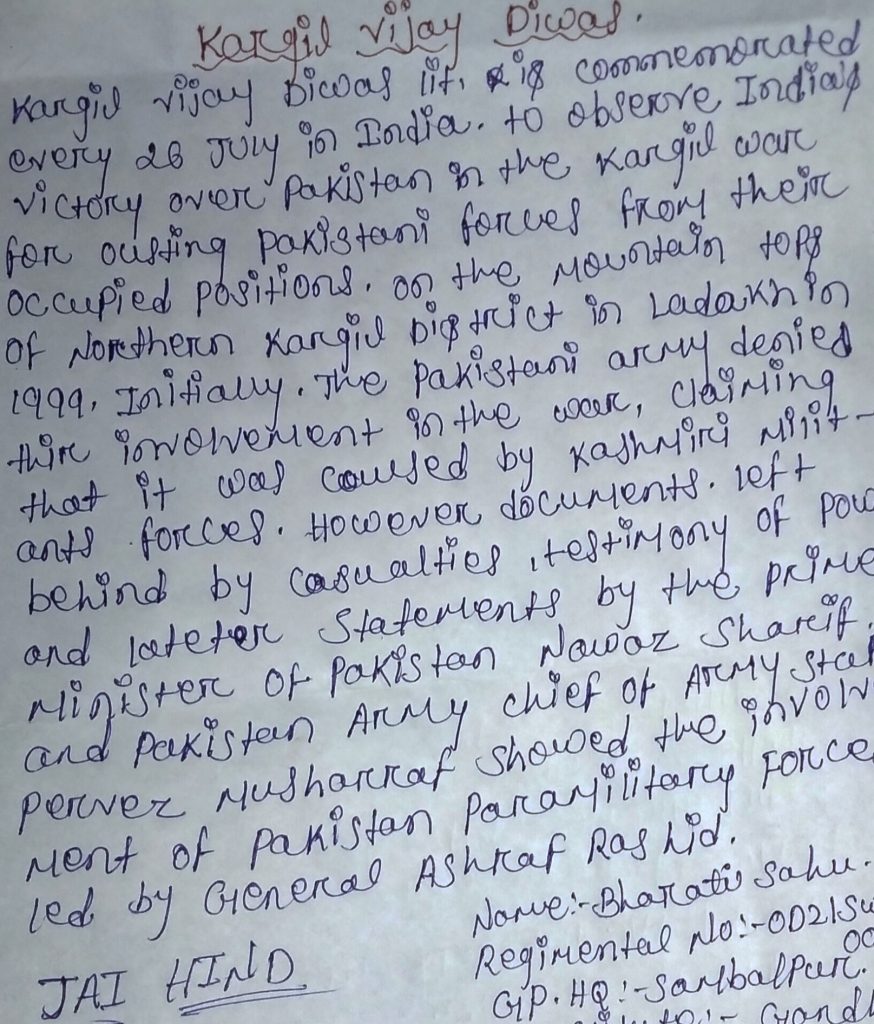 Kargil Vijay Diwas.
Kargil Vijay Diwas lit, is commemorated
every 26 July in India. to observe India's
victory over Pakistan in the Kargil war
for ousting Pakistani forces from their
occupied positions. on the Mountain tops
of Northern Kargil District in Ladakh in
1999. Initially. The Pakistani army denied
thir involvement in the war, claiming
that it was caused by Kashmiri Milit-
ants forces. However documents. left
behind by casualties, testimony of POW
and lateter Statements by the Prime
Minister of Pakistan Nawaz Sharif.
and Pakistan Army chief of Army Staf
Pervez Musharraf showed the involv
ment of Pakistan Paramilitary Force
led by General Ashraf Rashid.
Name:- Bharati Sahu.
JAI HIND
Regimental No:- OD21SW
00
GP. HQ:- Sambalpur.
:- Gandh